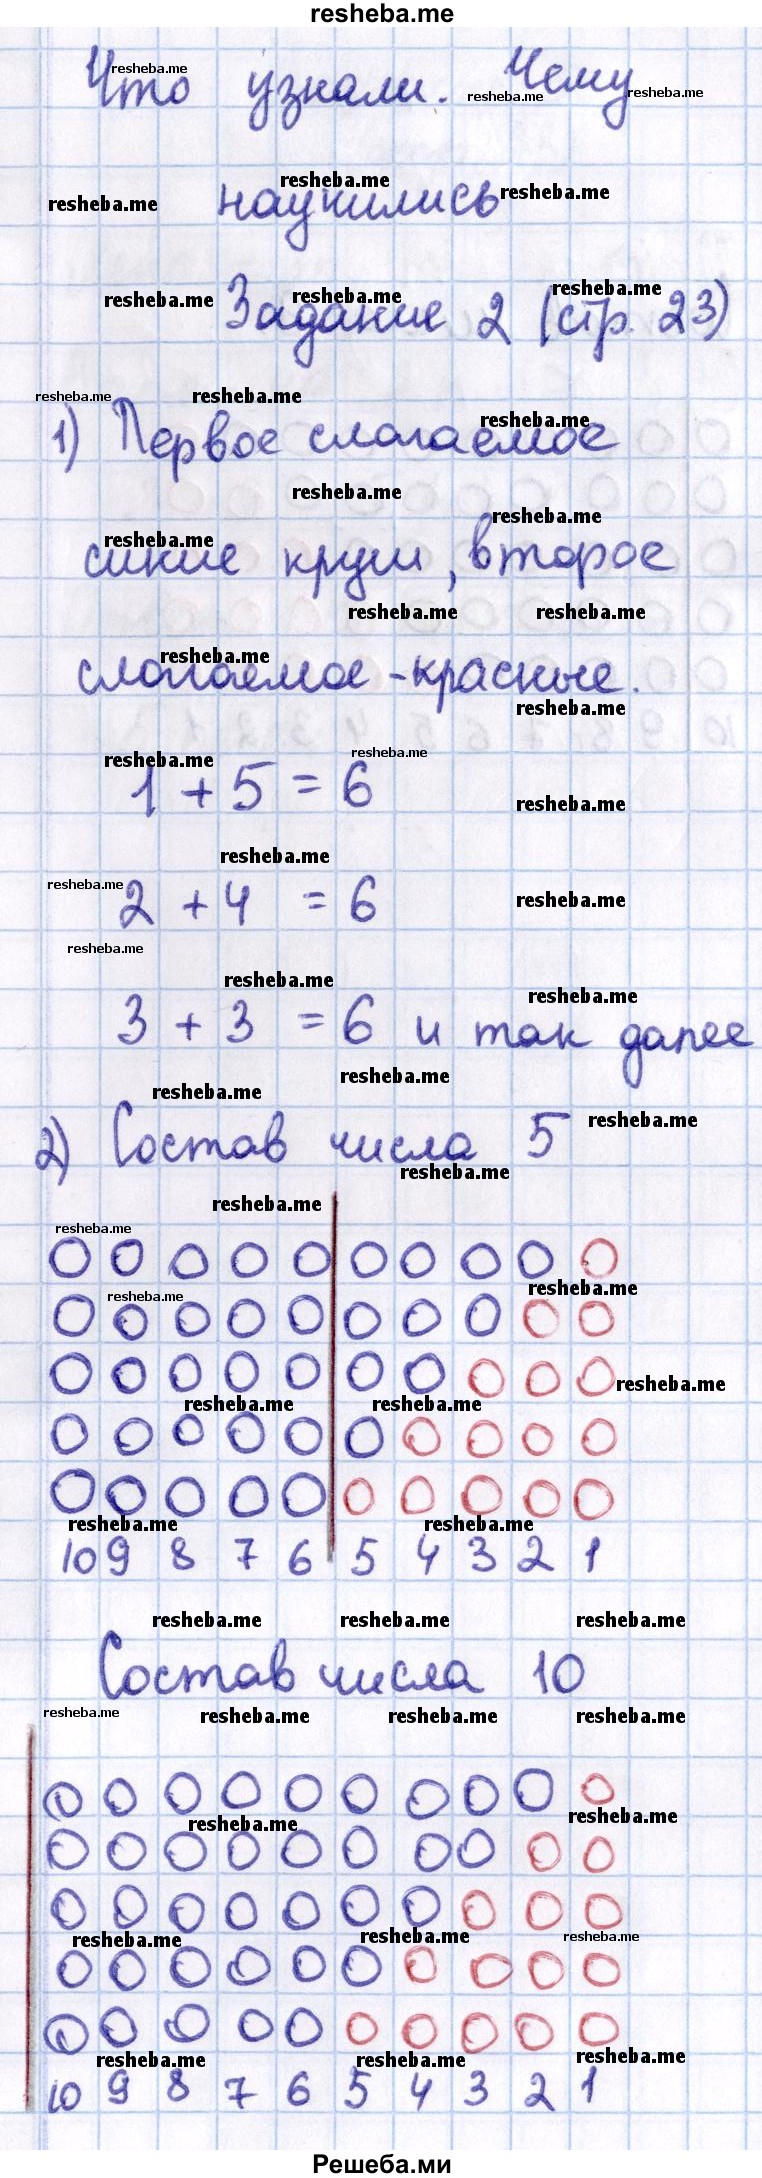 resheba.me
Что узнали. Чему
научились
Задание 2 (стр. 23)
1) Первое слагаемое
синие круги, второе
слагаемое - красные.
1 + 5 = 6
2 + 4 = 6
3 + 3 = 6 и так далее
2) Состав числа 5
10 9 8 7 6 5 4 3 2 1
Состав числа 10
10 9 8 7 6 5 4 3 2 1
Решеба.ми